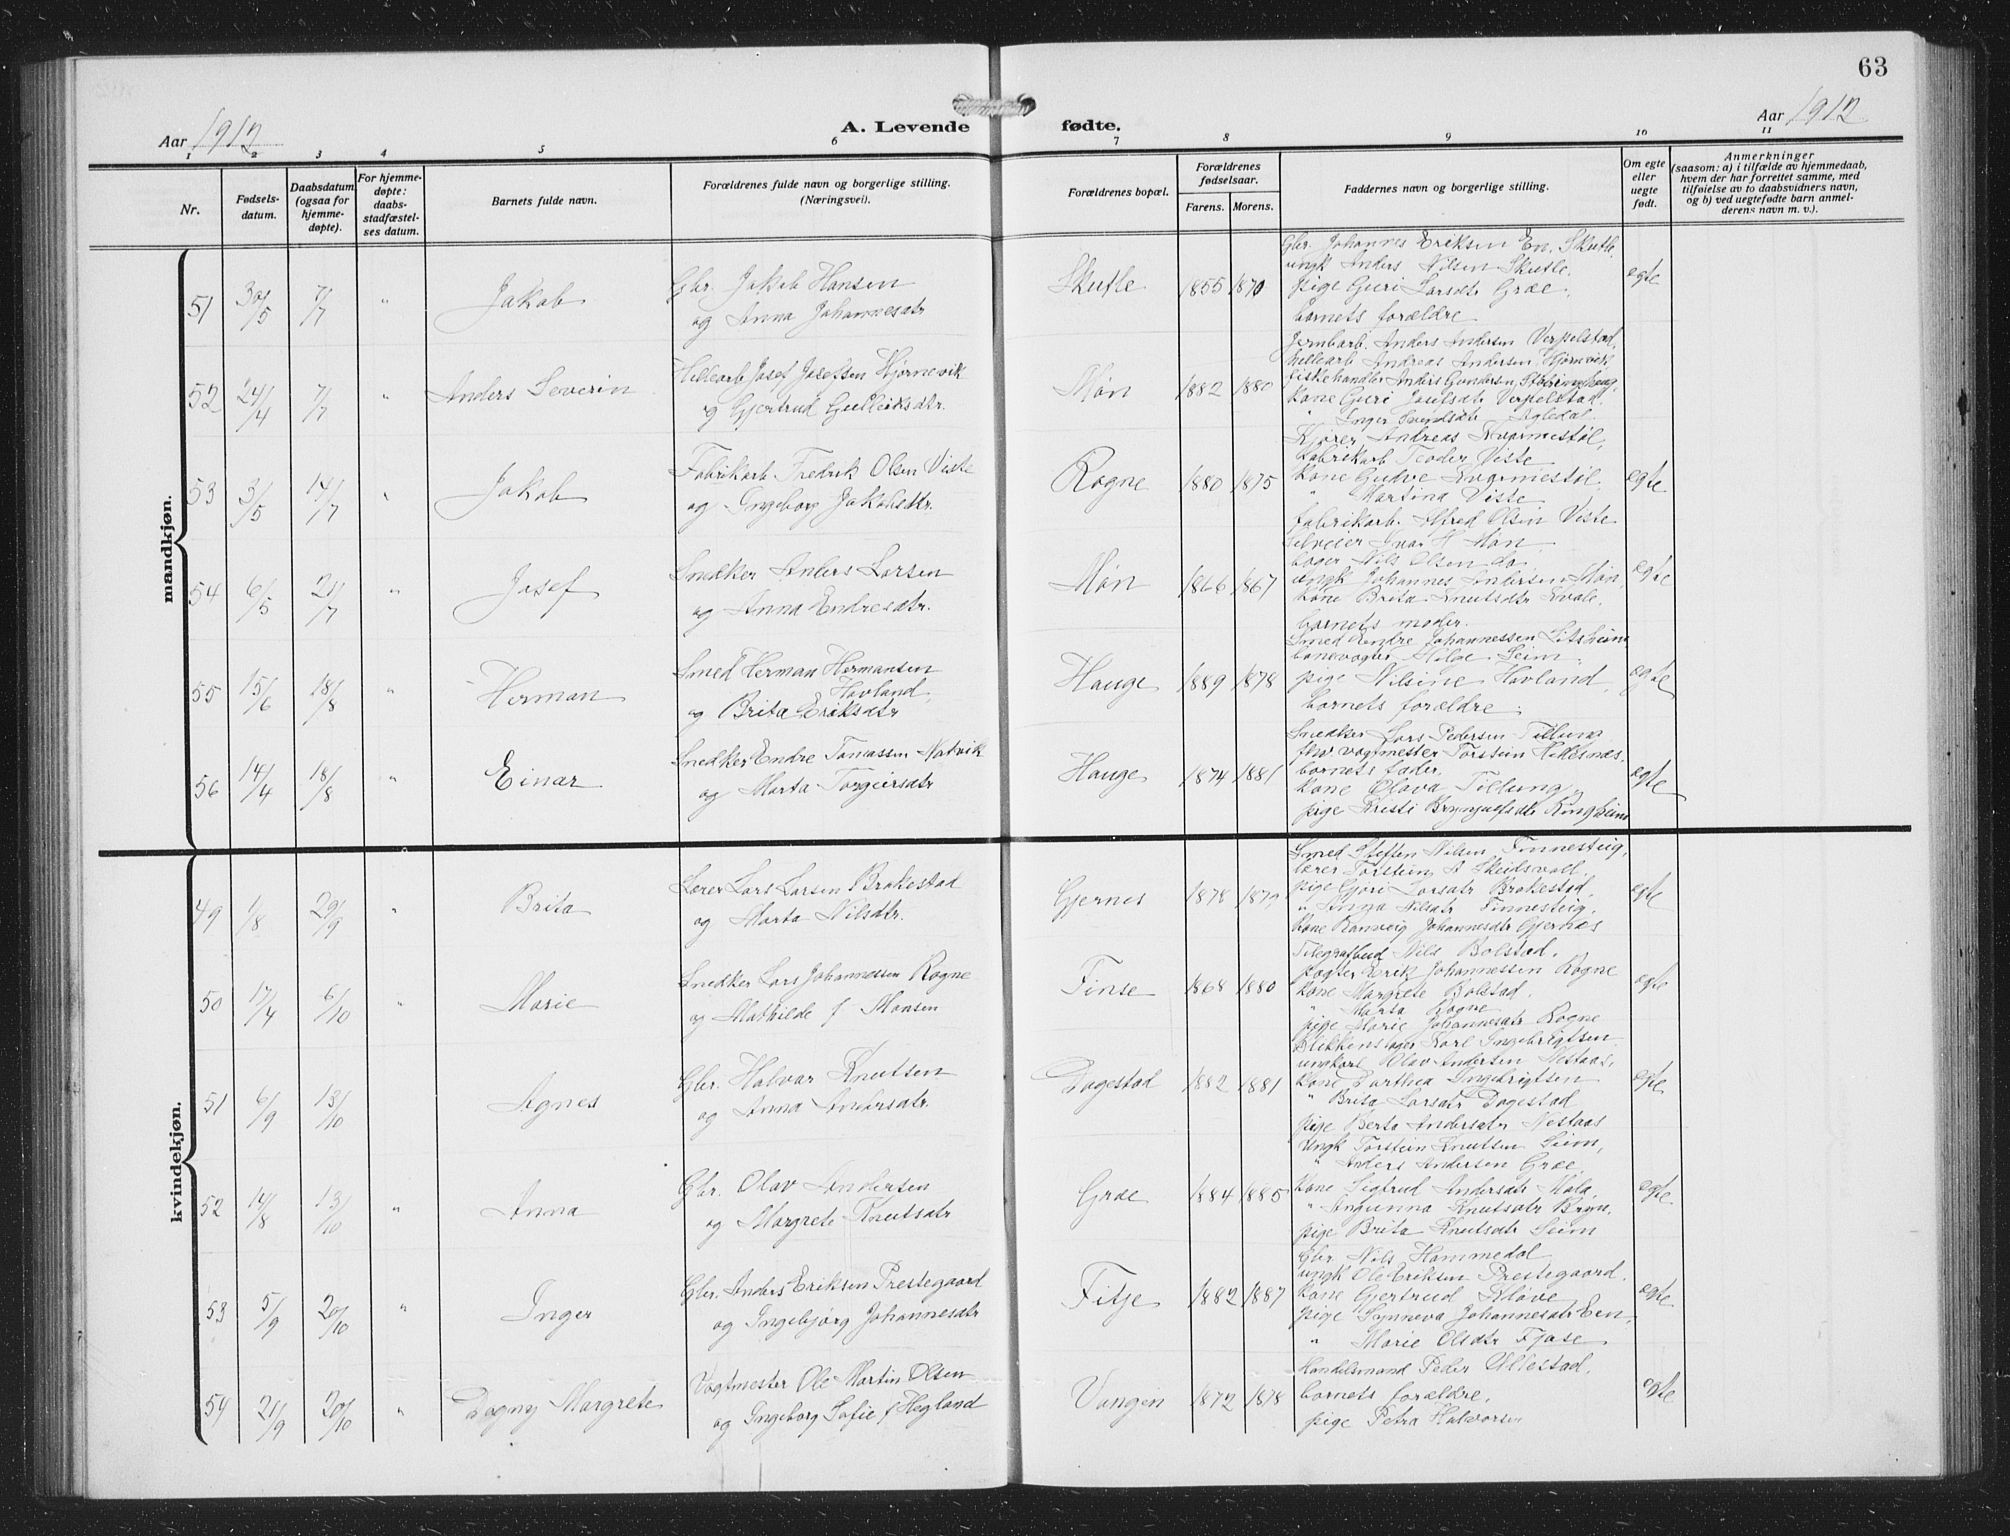 63
Aar 1912
A. Levende fødte.
Aar 1912
1 2 3 4 5 6 7 8 9 10 11
Nr.
Fødsels-
datum.
Daabsdatum
(ogsaa for
hjemme-
døpte).
For hjemme-
døpte:
daabs-
stadfæstel-
ses datum.
Barnets fulde navn.
Forældrenes fulde navn og borgerlige stilling.
(Næringsvei).
Forældrenes bopæl.
Forældrenes
fødselsaar.
Farens. Morens.
Faddernes navn og borgerlige stilling.
Om egte
eller
uegte
født.
Anmerkninger
(saasom: a) i tilfælde av hjemmedaab,
hvem der har forrettet samme, med
tilføielse av to daabsvidners navn,
og b) ved uegtefødte barn anmel-
derens navn m. v.).
mandkjøn.
51 30/5 7/7 " Jakob
Gbr. Jakob Hansen
og Anna Johannesdtr
Skutle 1855 1870
Gbr. Johannes Eriksen En. Skutle,
ungk Anders Nilsen Skutle.
pige Guri Larsdtr Græe,
barnets forældre
egte
52 24/4 7/7 " Anders Severin
Hellearb Josef Josefsen Hjørnevik
og Gjertrud Gulleiksdtr.
Møn 1882 1880
Jernbarb. Anders Andersen Verpelstad,
hellearb Andreas Andersen Hjørnevik
fiskehandler Anders Gundersen
kone Guri Josefsdtr Verpelstad
" Inger
53 3/5 14/7 " Jakob
Fabrikarb Fredrik Olsen Viste
og Ingeborg Jakobsdtr.
Rogne 1880 1875
Kjører Andreas Kvarmestøl,
fabrikarb Teodor Viste
kone Gudve Kvarmestøl
" Martina Viste
fabrikarb. Alfred Olsen Viste
egte
54 6/5 21/7 " Josef
Snedker Anders Larsen
og Anna Endresdtr.
Møn 1866 1867
Ivar H Møn
Nils Olsen do
ungk Johannes Andersen Møn,
kone Brita Knutsdtr Kvale,
barnets moder.
egte
55 15/6 18/8 " Herman
Smed Herman Hermansen
Havland
og Brita Eriksdtr
Hauge 1889 1878
Smed Endre Johannessen Litsheim
banevogter Hilge Seim
pige Nilsine Havland,
barnets forældre.
egte
56 14/4 18/8 " Einar
Snedker Endre Tomassen Natvik
og Marta Torgeirsdtr
Hauge 1874 1881
Snedker Lars Pedersen Tillung
fhv vogtmester Torstein Hellesnæs,
barnets fader
kone Olava Tillung
pige Kristi Brynjulfsdtr Ringheim
egte
kvindekjøn.
49 1/8 29/9 " Brita
Lærer Lars Larsen Brakestad
og Marta Nilsdtr.
Gjernes 1878 1879
Smed Steffen Nilsen Finnesteig,
lærer Torstein A Skeidsvoll
pige Guri Larsdtr Brakestad,
" Anna Nilsdtr Finnesteig,
kone Ranveig Johannesdtr Gjernæs
egte
50 17/4 6/10 " Marie
Snedker Lars Johannessen Rogne
og Mathilde f Monsen
Finse 1868 1880
Telegrafbud Nils Bolstad.
vogter Erik Johannessen Rogne
kone Margrete Bolstad.
" Marta Rogne
pige Marie Johannesdtr Rogne
egte
51 6/9 13/10 " Agnes
Gbr. Halvar Knutsen
og Anna Andersdtr.
Dagestad 1882 1881
Blikkenslager Karl Ingebrigtsen
ungkarl Olav Andersen Nestaas,
kone Dorthea Ingebrigtsen
" Brita Larsdtr Dagestad
pige Berta Andersdtr Nestaas
egte
52 14/8 13/10 " Anna
Gbr. Olav Andersen
og Margrete Knutsdtr
Græe 1884 1885
Ungk Torstein Knutsen Seim,
" Anders Andersen Græe,
kone Sigtrud Andersdtr Mala,
" Angunna Knutsdtr Bryn,
pige Brita Knutsdtr Seim
egte
53 5/9 20/10 " Inger
Gbr. Anders Eriksen Prestegaard
og Ingebjørg Johannesdtr
Fitje 1882 1887
Gbr Nils Hammedal
ungk Ole Eriksen Prestegaard,
kone Gjertrud Kløve
pige Synneva Johannesdtr Een,
" Marie Olsdtr Fjose
egte
54 21/9 20/10 " Dagny Margrete
Vogtmester Ole Martin Olsen
og Ingeborg Sofie f Hegland
Vangen 1872 1878
Handelsmand Peder Ullestad,
barnets forældre,
pige Petra Halvorsen
egte